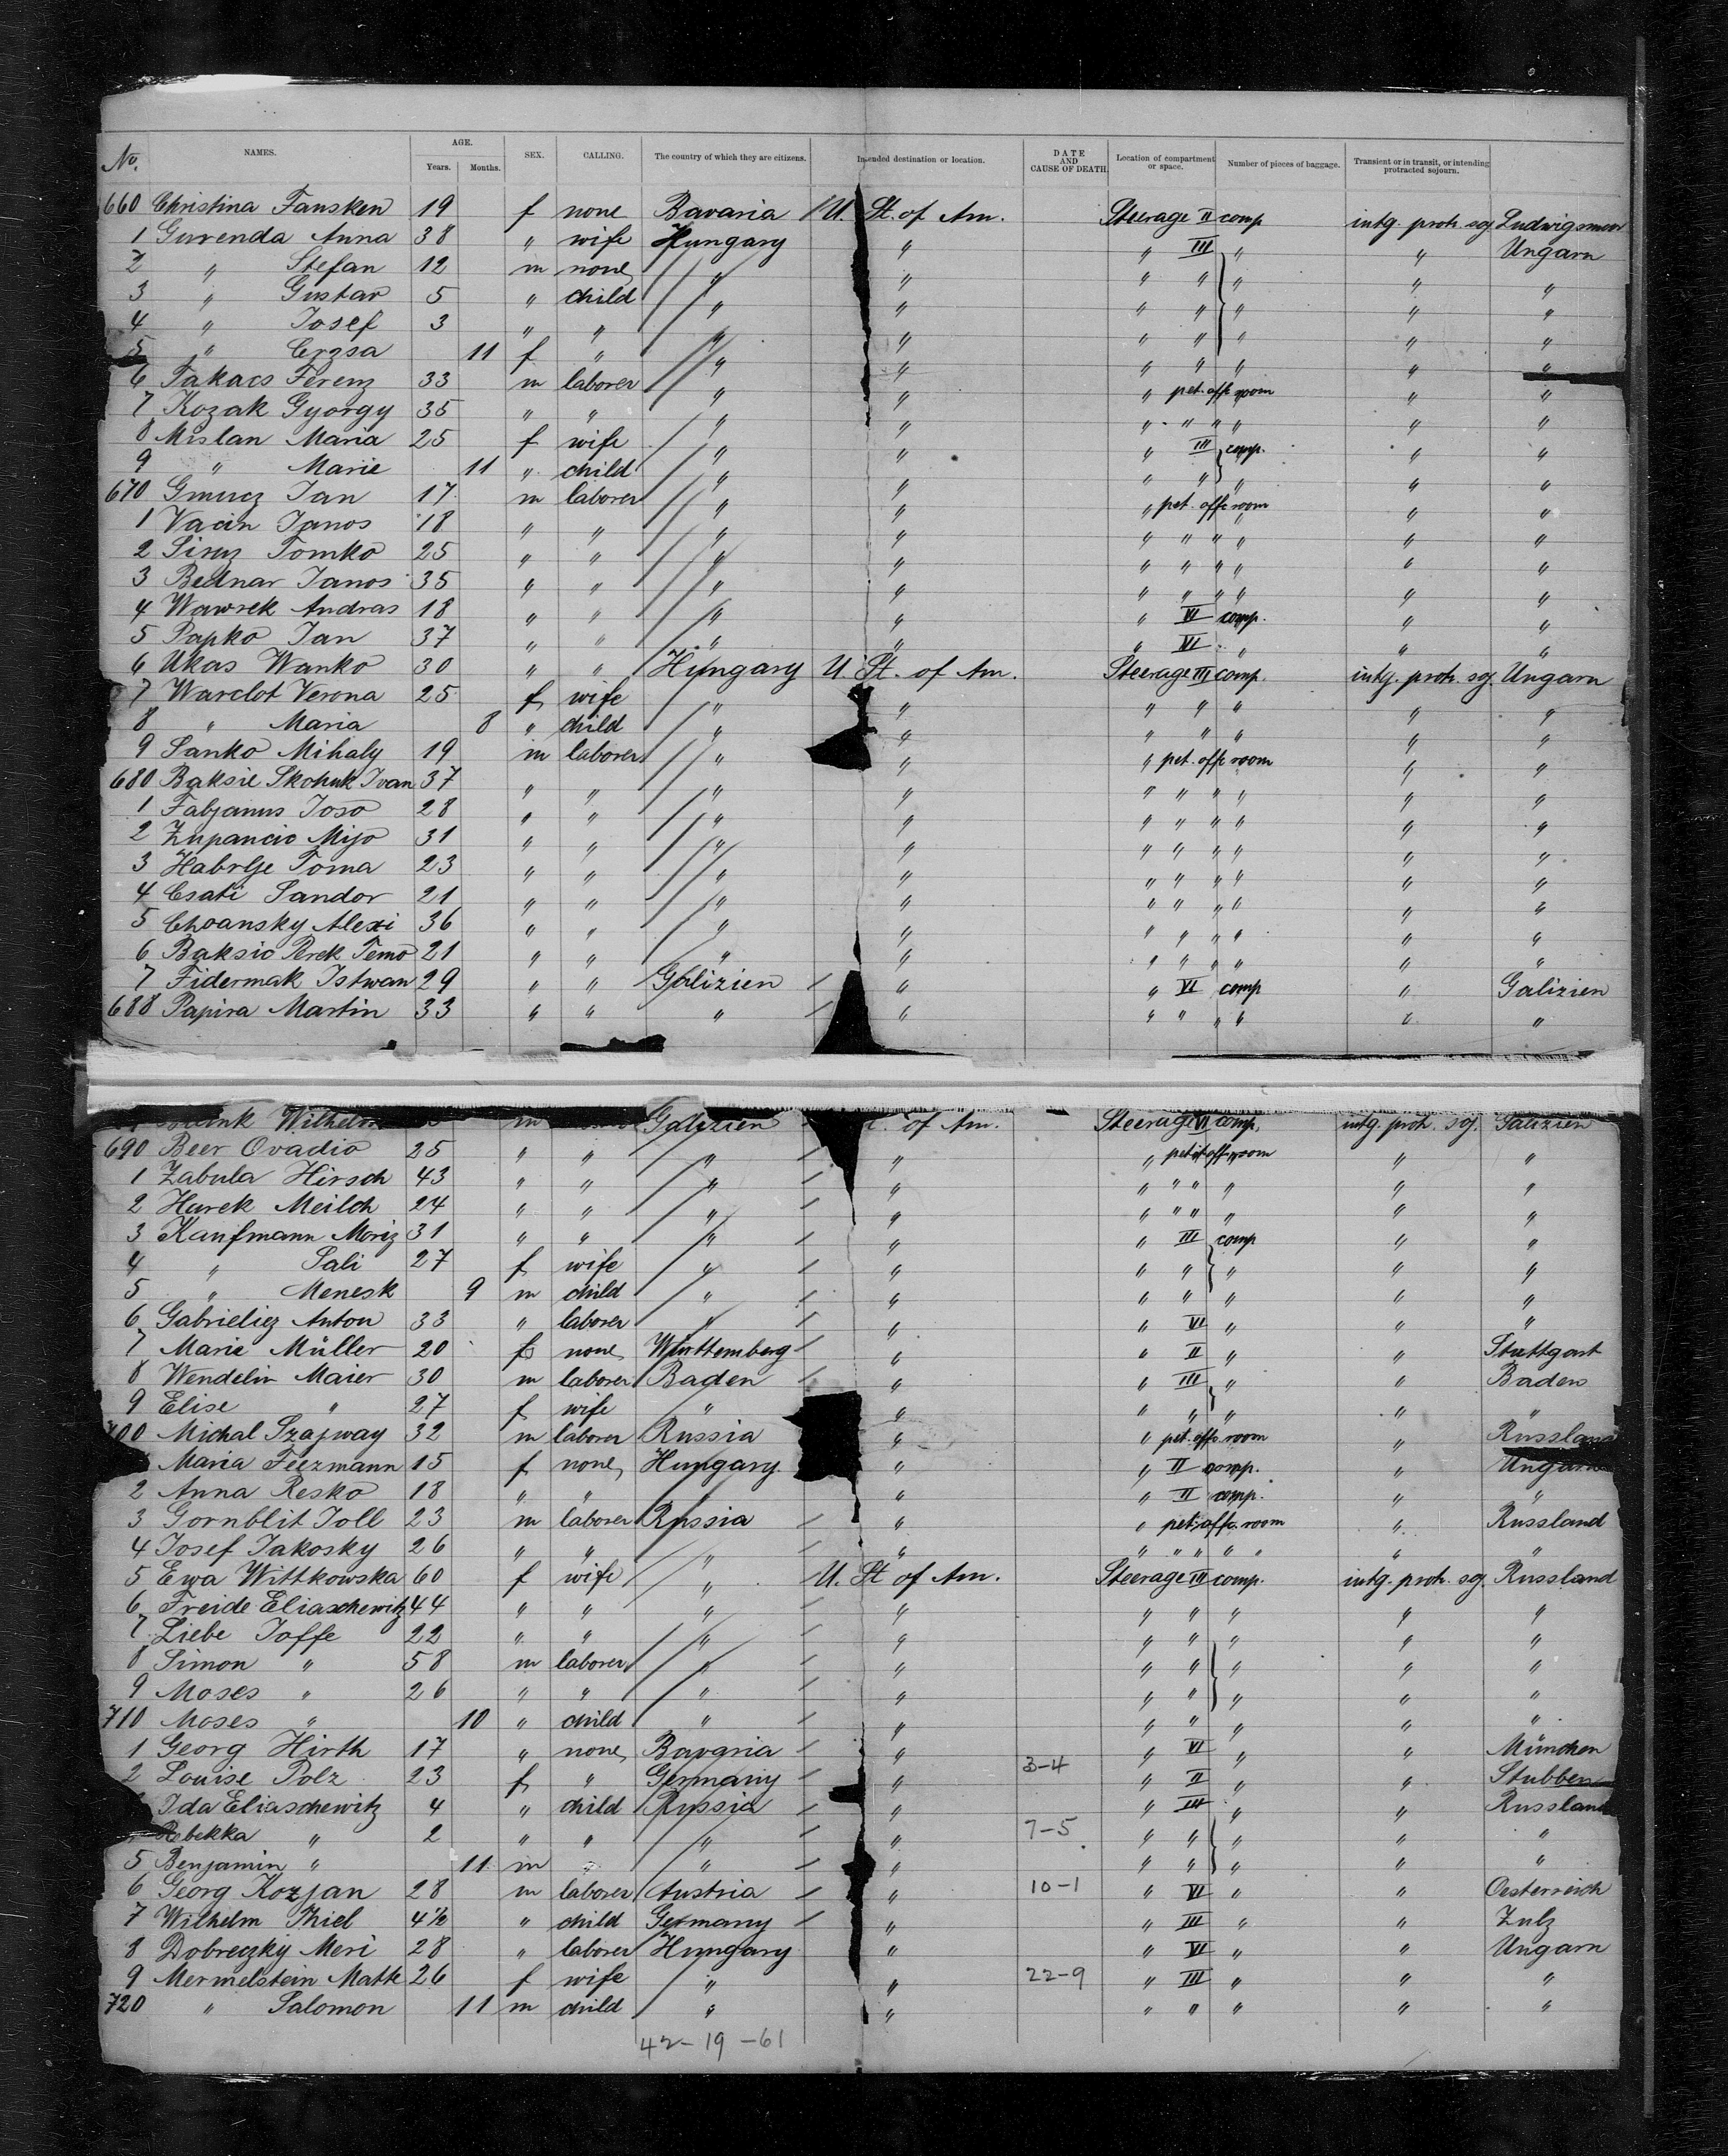 No. NAMES. AGE. Years. Months. SEX. CALLING. The country of which they are citizens. Intended destination or location. DATE AND CAUSE OF DEATH. Location of compartment or space. Number of pieces of baggage. Transient or in transit, or intending protracted sojourn.
660 Christina Fansken 19 f none Bavaria U. St. of Am. Steerage II comp intg. protr. soj. Ludwigsmoor
1 Gurenda Anna 38 " wife Hungary " " III " " Ungarn
2 " Stefan 12 m none " " " " " " "
3 " Gustav 5 " child " " " " " " "
4 " Josef 3 " " " " " " " " "
5 " Erzsa 11 f " " " " " " " "
6 Takacs Ferenz 33 m laborer " " " pet. offc room " "
7 Kozak Gyorgy 35 " " " " " " " " " "
8 Mislan Maria 25 f wife " " " III comp. " "
9 " Marie 11 " child " " " " " " "
670 Gmucz Jan 17 m laborer " " " pet. offc room " "
1 Vacin Janos 18 " " " " " " " " " "
2 Tomko 25 " " " " " " " " " "
3 Bednar Janos 35 " " " " " " " " " "
4 Wawrek Andras 18 " " " " " VI comp. " "
5 Papko Jan 37 " " " " " VI " " "
6 Ukas Wanko 30 " " Hungary U. St. of Am. Steerage III comp. intg. protr. soj. Ungarn
7 Warclot Verona 25 f wife " " " " " " "
8 " Maria 8 " child " " " " " " "
9 Sanko Mihaly 19 m laborer " " " pet. offc room " "
680 Baksie Skohuk Ivan 37 " " " " " " " " " "
1 Fabjanus Joso 28 " " " " " " " " " "
2 Zupancic Mijo 31 " " " " " " " " " "
3 Habrlje Toma 23 " " " " " " " " " "
4 Csati Sandor 21 " " " " " " " " " "
5 Choansky Alexi 36 " " " " " " " " " "
6 Baksic Perek Temo 21 " " " " " " " " " "
7 Fidermak Istwan 29 " " Galizien " " VI comp " Galizien
688 Papira Martin 33 " " " " " " " " " "
Wilhelm m Galizien of Am. Steerage VI comp. intg. protr. soj. Galizien
690 Beer Ovadio 25 " " " " " petit off room " "
1 Zabula Hirsch 43 " " " " " " " " " "
2 Harek Meilch 24 " " " " " " " " " "
3 Kaufmann Moriz 31 " " " " " III comp " "
4 " Sali 27 f wife " " " " " " "
5 " Menesk 9 m child " " " " " " "
6 Gabrieliez Anton 33 " laborer " " " VI " " "
7 Marie Müller 20 f none Württemberg " " II " " Stuttgart
8 Wendelin Maier 30 m laborer Baden " " III " " Baden
9 Elise " 27 f wife " " " " " " "
700 Michal Szajway 32 m laborer Russia " " pet. offc room " Russland
Maria Feezmann 15 f none Hungary " " II comp. " Ungarn
2 Anna Resko 18 " " " " " II comp. " "
3 Gornblit Joll 23 m laborer Russia " " pet. offc. room " Russland
4 Josef Jakosky 26 " " " " " " " " " " "
5 Ewa Wittkowska 60 f wife " U. St of Am. Steerage III comp. intg. protr. soj. Russland
6 Freide Eliaschewitz 44 " " " " " " " " "
7 Liebe Joffe 22 " " " " " " " " "
8 Simon " 58 m laborer " " " " " " "
9 Moses " 26 " " " " " " " " "
710 Moses " 10 " child " " " " " " "
1 Georg Hirth 17 " none Bavaria " " VI " " München
2 Louise Polz 23 f " Germany " 3-4 " II " " Stubben
Ida Eliaschewitz 4 " child Russia " " III " " Russland
Rebekka " 2 " " " " 7-5 " " " " "
5 Benjamin " 11 m " " " " " " " "
6 Georg Kozjan 28 m laborer Austria " 10-1 " VI " " Oesterreich
7 Wilhelm Thiel 4½ " child Germany " " III " " Zulz
8 Dobreczky Meri 28 " laborer Hungary " " VI " " Ungarn
9 Mermelstein Matte 26 f wife " " 22-9 " III " " "
720 " Salomon 11 m child " " " " " " "
42-19-61